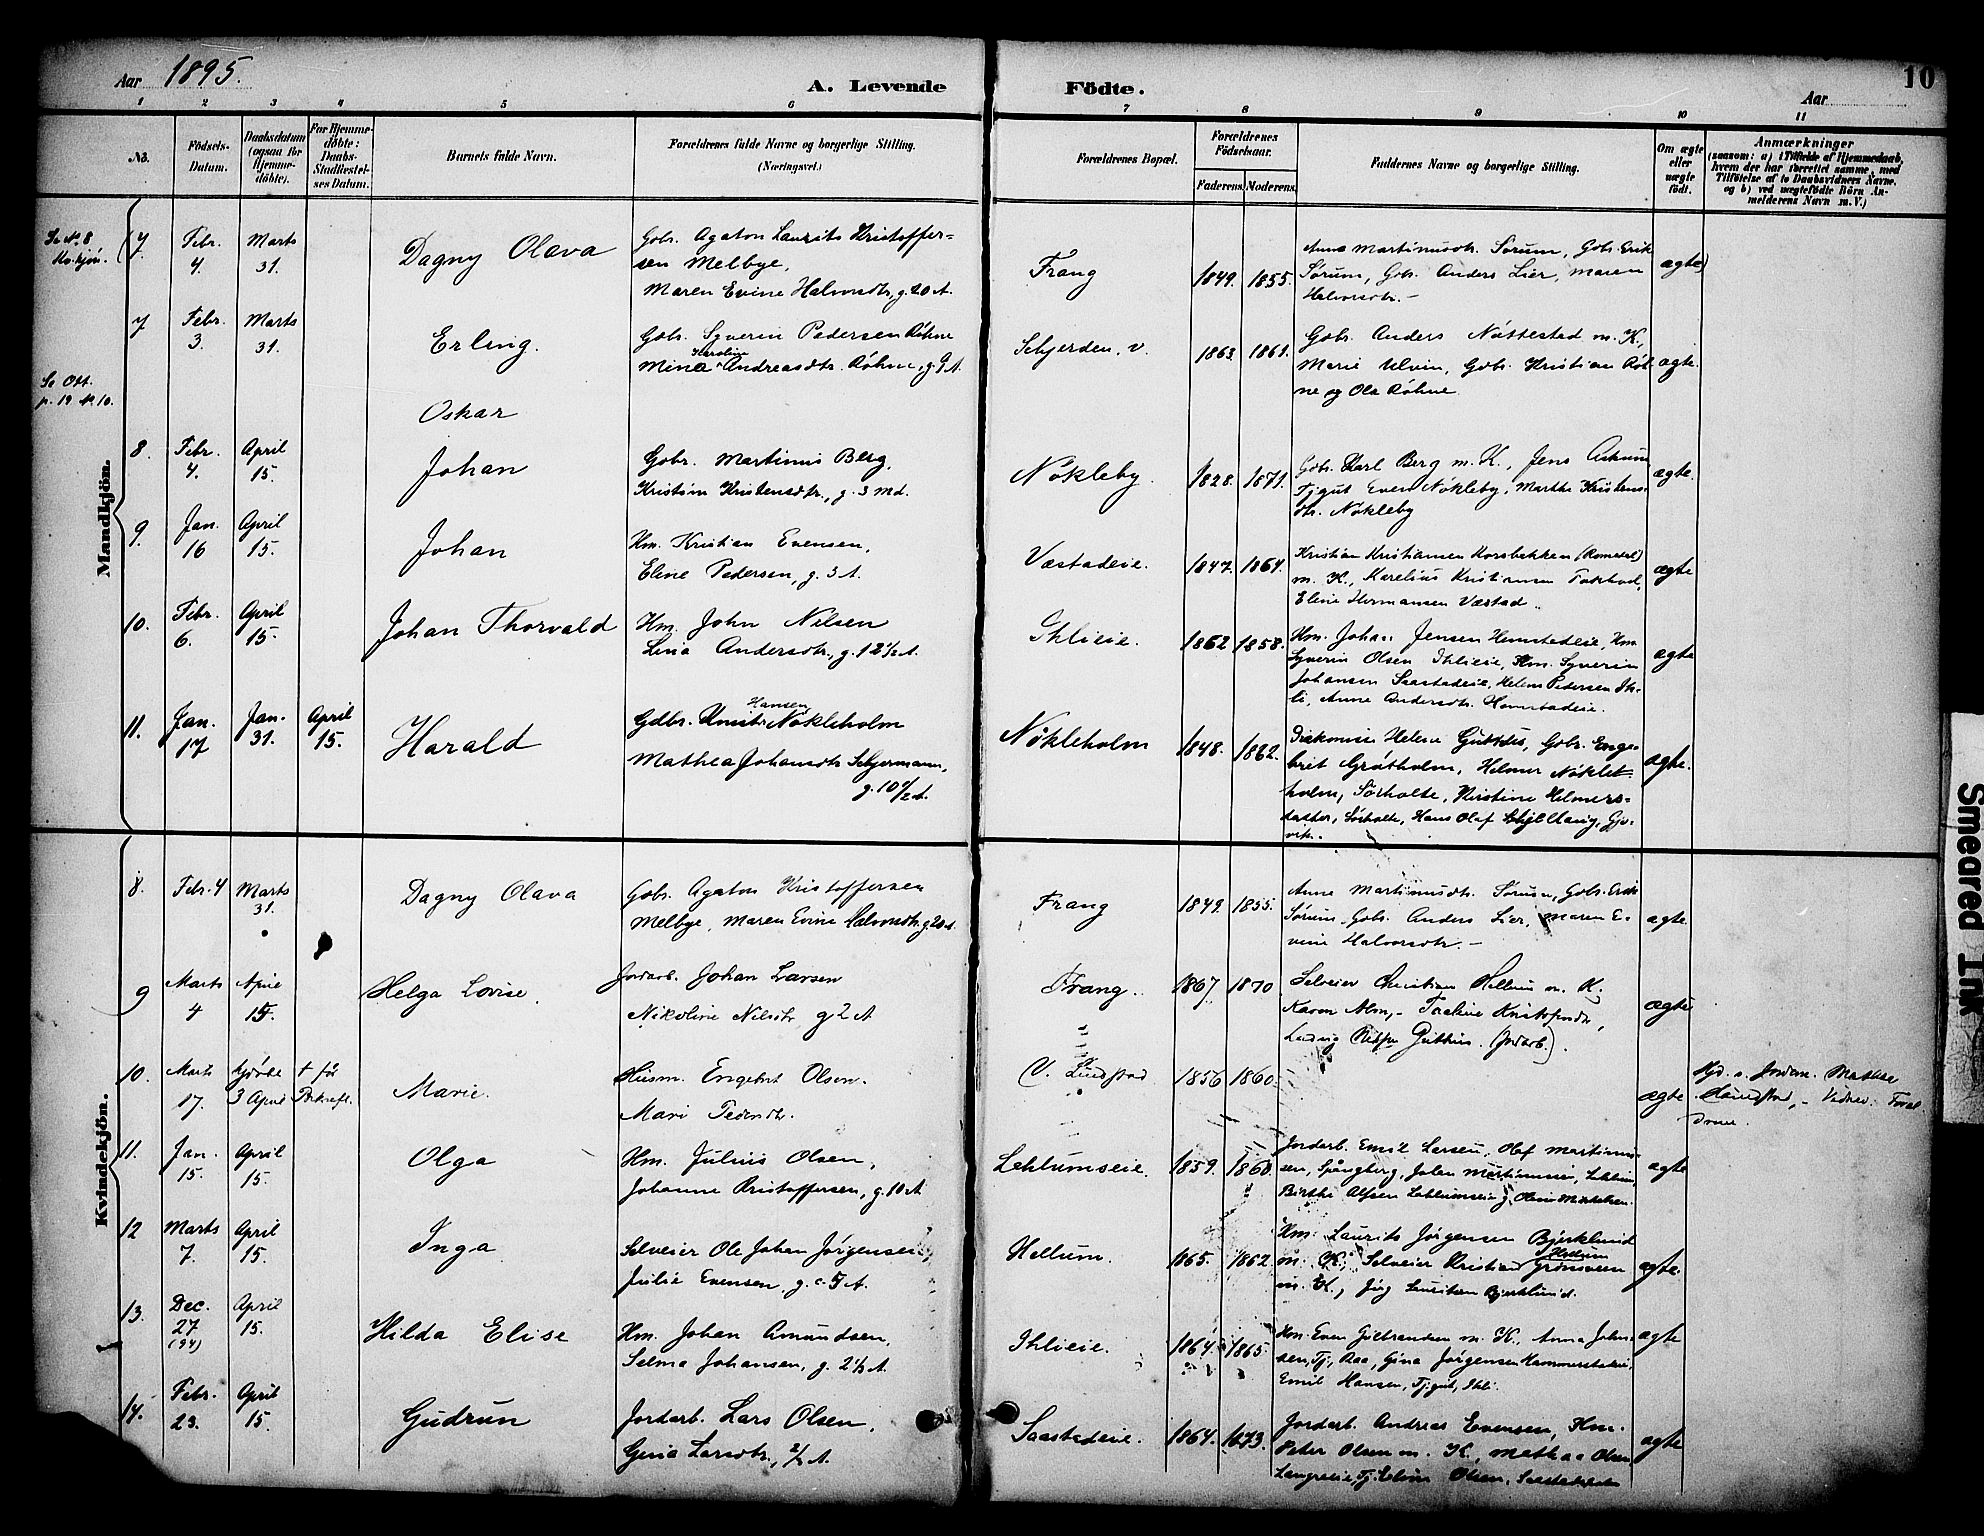 Aar 1895.
A. Levende
Födte.
Aar
10
1 2 3 4 5 6 7 8 9 10 11
No.
Födsels-Datum.
Daabsdatum (ogsaa for Hjemme-döbte).
For Hjemme-döbte: Daabs-Stadfæstel-ses Datum.
Barnets fulde Navn.
Forældrenes fulde Navne og borgerlige Stilling. (Næringsvei.)
Forældrenes Bopæl.
Forældrenes Födselsaar.
Faderens. Moderens.
Faddernes Navne og borgerlige Stilling.
Om ægte eller uægte födt.
Anmærkninger
(saasom: a) i Tilfælde af Hjemmedaab, hvem der har forrettet samme, med Tilföielse af to Daabsvidners Navne. og b) ved uægtefödte Börn An-melderens Navn m. V.)
Mandkjön.
Se No. 8 Kv.kjön.
7. Febr. 4. Marts 31. Dagny Olava
Gbr. Agaton Laurits Kristoffer-
sen Melbye,
Maren Evine Halvorsdtr., g. 20 A.
Frang 1849. 1855.
Anna Martinusdtr. Sørum, Gbr. Erik
Sørum, Gbr. Anders Lier, Maren
Halvorsdtr. –
ægte)
7 Febr. 3. Marts 31. Erling.
Gbr. Syverin Pedersen Røhne
Mina Karoline Andreasdtr. Røhne, g. 9 A.
Schjerden, v. 1863 1861.
Gbr. Anders Nøttestad m. K.,
Marie Ulvin, Gbr. Kristian Røh-
ne og Ole Røhne
ægte.
Se Ott. p. 19 No. 10.
Oskar
8. Febr. 4. April 15. Johan
Gbr. Martinus Berg,
Kristine Kristensdtr., g. 3 Md.
Nøkleby. 1828. 1871.
Gbr. Karl Berg m. K., Jens Askum
Tjgut Even Nøkleby, Marthe Kristens-
dtr. Nøkleby
ægte.
9. Jan. 16 April 15. Johan
Hm. Kristian Evensen,
Eline Pedersen, g. 3 A.
Væstadeie. 1847. 1864.
Kristian Kristiansen Korsbakken (Romedal)
m. K., Karelius Kristiansen
Eline Hermansen Væstad.
ægte
10. Febr. 6. April 15. Johan Thorvald
Hm. John Nilsen
Lina Andersdtr., g. 12½ A.
Ihlieie. 1862 1858.
Hm. Johan Jensen Hemstadeie, Hm
Syverin Olsen Ihlieie, Hm. Syverin
Johansen Saastadeie, Helene Pedersen Ih-
li, Anne Andersdtr. Hemstadeie.
ægte
11. Jan. 17 Jan. 31. April 15. Harald
Gdbr. Hansen Nøkleholm
Mathea Johansdtr. Schjermann,
g. 10½ A.
Nøkleholm 1848. 1862.
Diakonisse Helene Guttus, Gbr. Enge-
bret Grøtholm, Helmer Nøkle-
holm, Sørholte, Kirstine Helmers-
datter, Sørholte, Hans Olaf Gjø-
vik.
ægte.
Kvindekjön.
8. Febr. 4 Marts 31. Dagny Olava
Gbr. Agaton Kristoffersen
Melbye, Maren Evine Halvorsdtr. g. 20 A.
Frang 1849. 1855.
Anne Martinusdtr. Sørum, Gbr. Erik
Sørum, Gbr. Anders Lier, Maren E-
vine Halvorsdtr. –
ægte.
9 Marts 4 April 15. Helga Lovise.
Jordarb. Johan Larsen
Nikoline Nilsdtr g 2 A
Frang. 1867 1870
Selveier Christian Hellum m. K.
Karen Alm, – Kristofersdtr,
Ludvig Guttus. (Jordarb.)
ægte
10. Marts 17. hjdøbt 3 April + før Bekræft. Marie.
Husm. Engebret Olsen.
Mari Pedersdtr.
V. Lundstad 1856 1860.
ægte
Hjd. v. Jordm. Mathea
Lundstad, – Vidner: Foræl
drene.
11. Jan. 15. April 15. Olga
Hm. Julius Olsen,
Johanne Kristoffersen, g. 10 A
Lehlumseie. 1859. 1860.
Jordarb. Emil Larsen, Olaf Martinus-
sen, Spångberg, Martinusen, Lehlum,
Birthe Alfsen Lehlumseie, Oline Mikkelsen.
ægte
12 Marts 7. April 15. Inga
Selveier Ole Johan Jørgensen,
Julie Evensen, g. c. 5 A.
Hellum. 1865. 1862
Hm. Laurits Jørgensen Bjerklund
m. K., Selveier Kristian Hellum Grønsveen
m. K., Lauritsen Bjerklund.
ægte.
13. Dec. 27 (94) April 15. Hilda Elise
Hm. Johan Amundsen,
Selma Johansen, g. 2½ A.
Ihlieie. 1864. 1865.
Hm. Even Gulbrandsen m. K., Anna Johan-
sen, Tj., Aaa, Gina Jørgensen Kammerstadeie,
Emil Hansen, Tjgut, Ihli.
ægte
14. Febr. 23. April 15. Gudrun
Jordarb. Lars Olsen,
Gina Larsdtr., ½ A.
Saastadeie. 1864. 1673.
Jordarb. Andreas Evensen, Hm.
Peter Olsen m. K., Mathea Olsen
Langseie, Tj. Olsen, Saastadeie
ægte
Smeared Ink